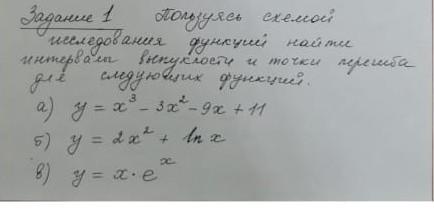 Задание 1 Пользуясь схемой
исследования функций найти
интервалы выпуклости и точки перегиба
для следующих функций.
а) y = x³ - 3x² - 9x + 11
б) y = 2x² + ln x
в) y = x · eˣ